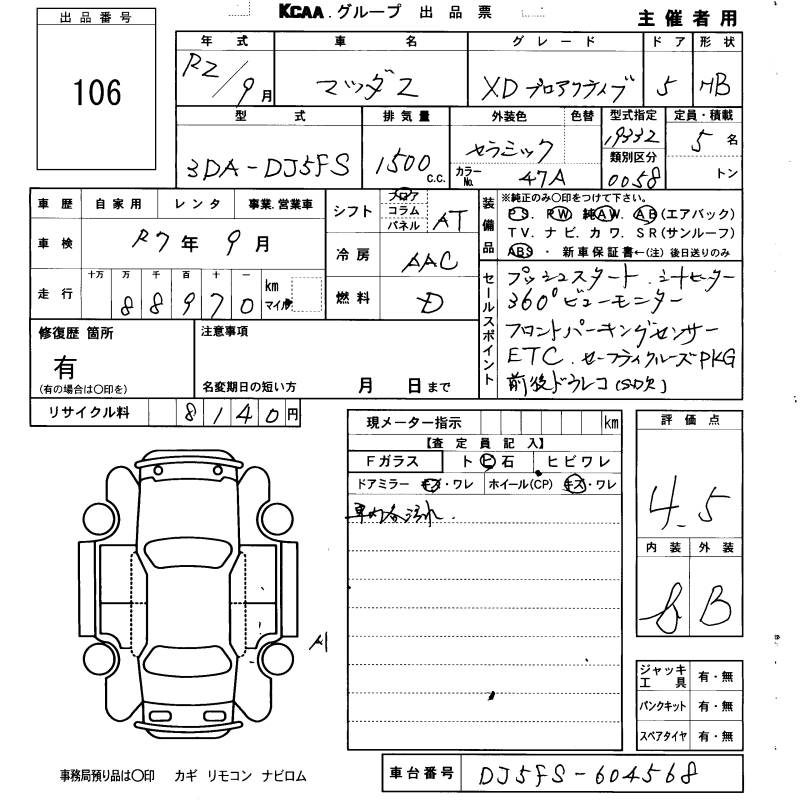 KCAA グループ 出品票
主催者用
出品番号
106
年式 車名 グレード ドア 形状
R2/9月 マツダ2 XDプロアクティブ 5 HB
型式 排気量 外装色 色替 型式指定 定員・積載
3DA-DJ5FS 1500 c.c. セラミック 19332 5名
カラーNo. 47A 類別区分 0058 トン
車歴 自家用 レンタ 事業.営業車
車検 R7年 9月
走行 十万 万 千 百 十 一 km マイル
88970
シフト フロア コラム パネル AT
冷房 AAC
燃料 D
装備品
※純正のみ○印をつけて下さい。
PS. PW 純AW. AB(エアバック)
TV. ナビ. カワ. SR(サンルーフ)
ABS ・ 新車保証書←(注) 後日送りのみ
セールスポイント
プッシュスタート.シートヒーター
360°ビューモニター
フロントパーキングセンサー
ETC.セーフティクルーズPKG
前後ドラレコ(SD欠)
修復歴 箇所
有
(有の場合は○印を)
注意事項
名変期日の短い方 月 日まで
リサイクル料 8140円
現メーター指示 km
【査定員記入】
Fガラス ト ヒ 石 ヒビワレ
ドアミラー キズ・ワレ ホイール(CP) キズ・ワレ
車内各汚れ.
評価点
4.5
内装 外装
B
A1
ジャッキ工具 有・無
パンクキット 有・無
スペアタイヤ 有・無
事務局預り品は○印 カギ リモコン ナビロム
車台番号 DJ5FS-604568